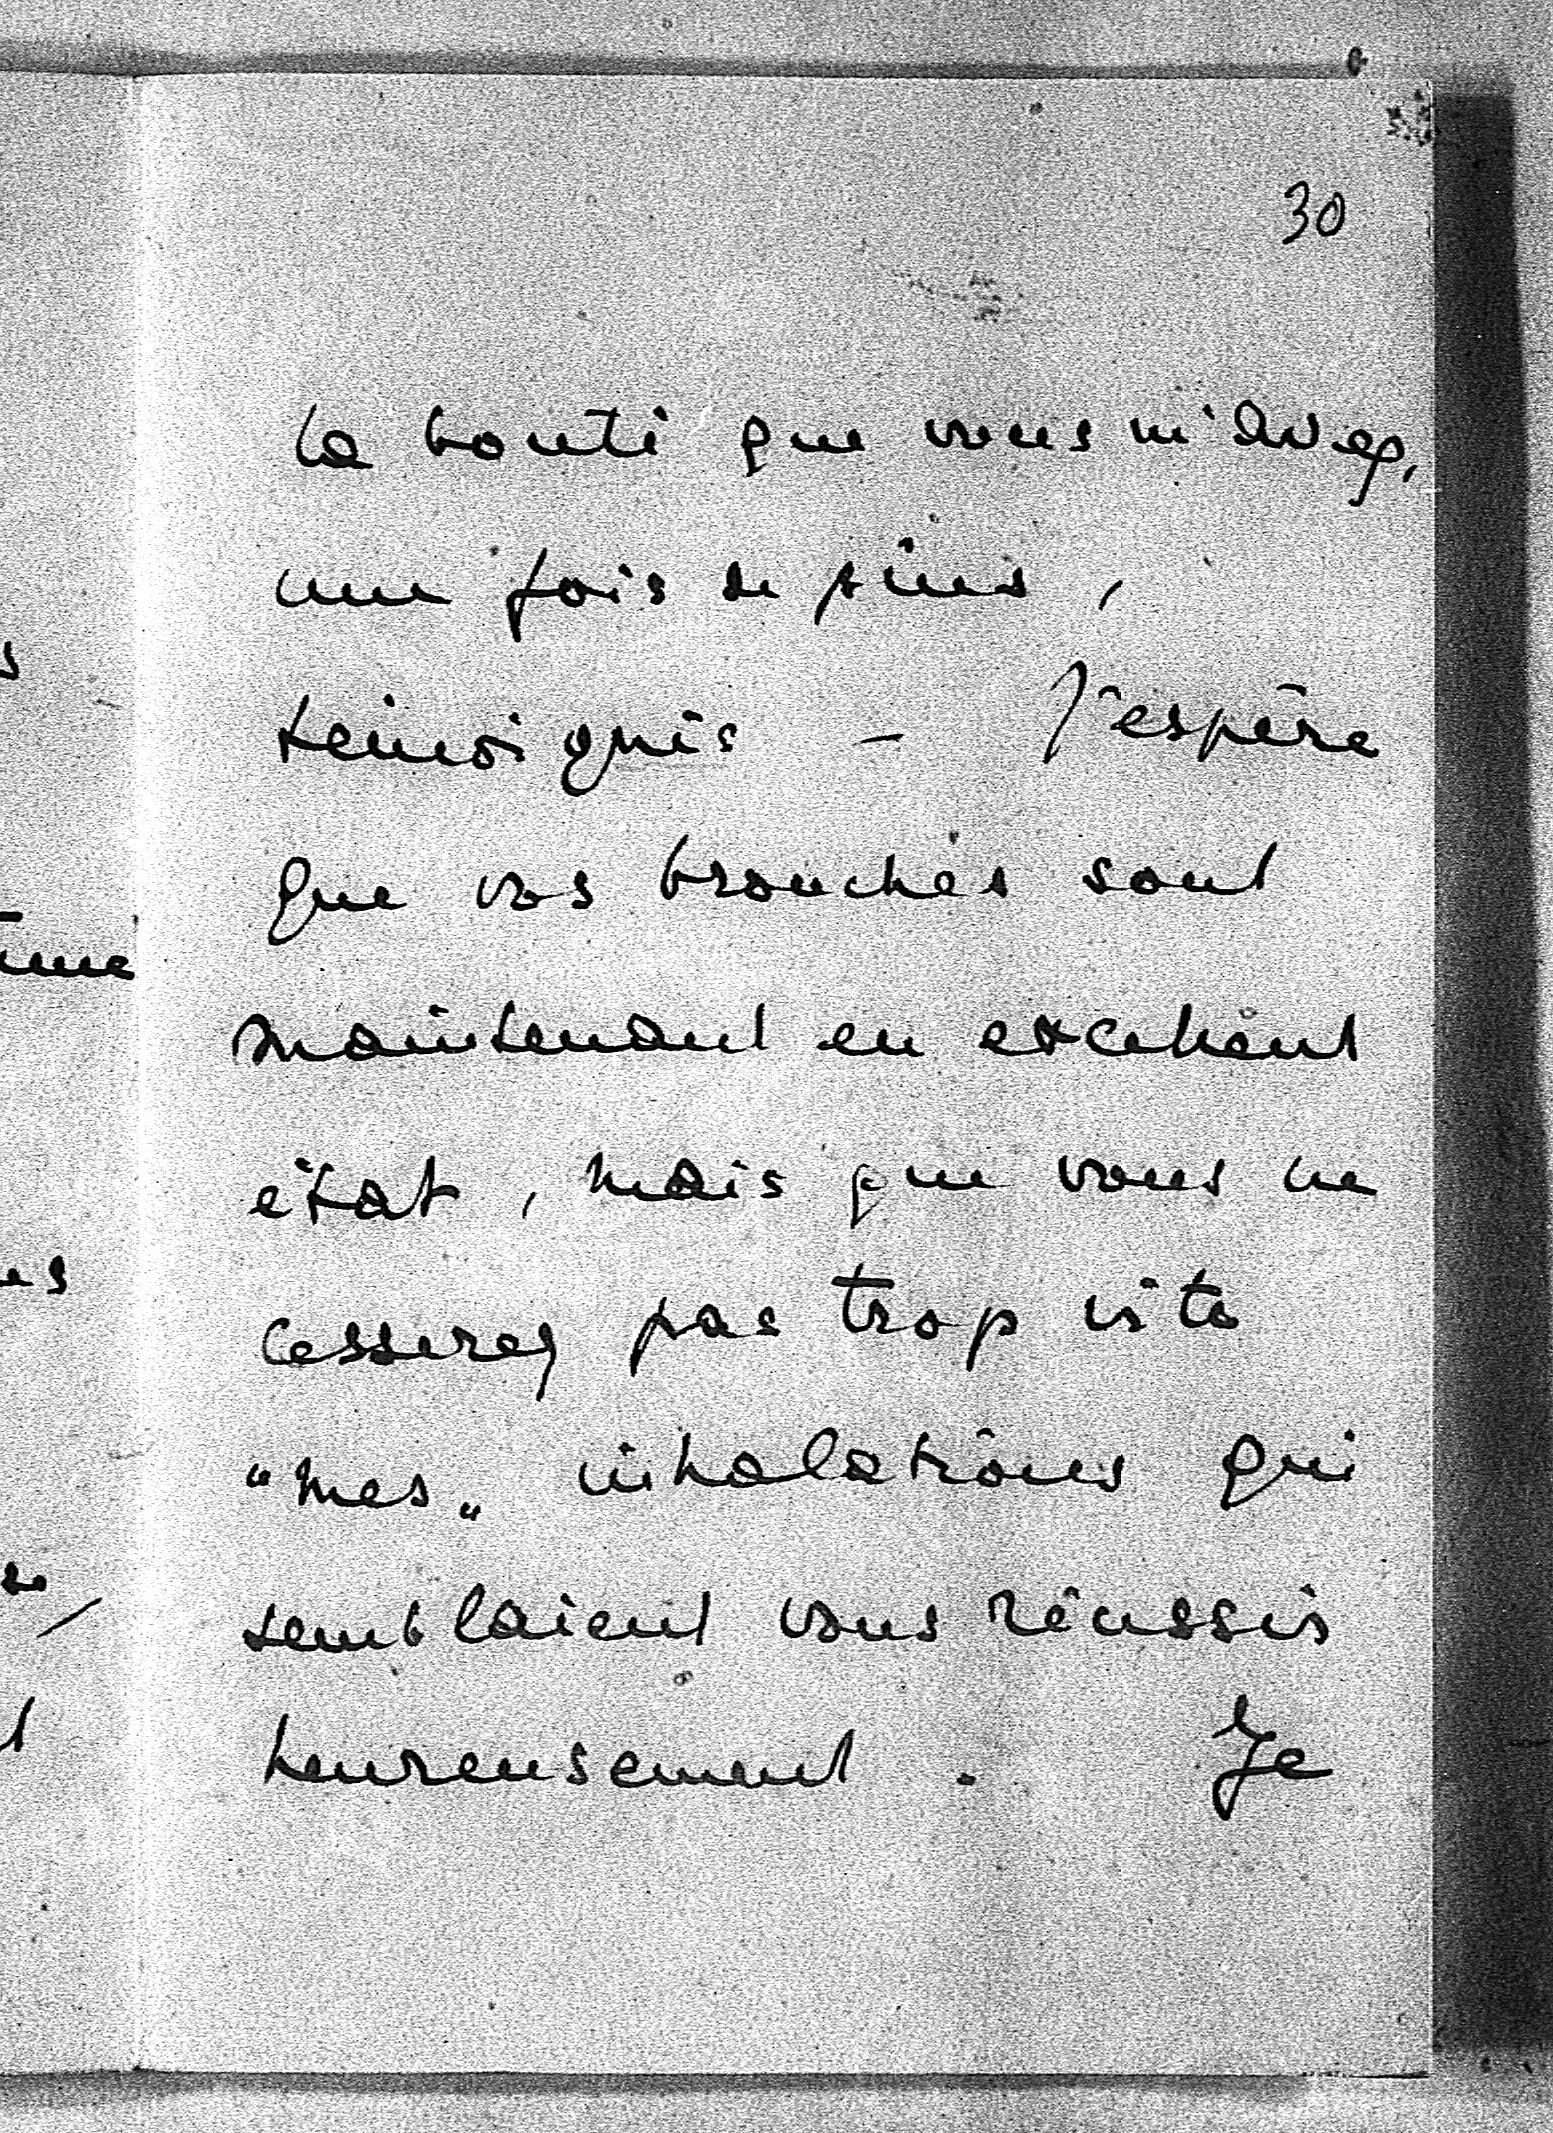 30
la bonté que vous m'avez,
une fois de plus,
témoignée - J'espère
que vos bronches sont
maintenant en excellent
état, mais que vous ne
cesserez pas trop vite
"mes" inhalations qui
semblaient vous réussir
heureusement. Je